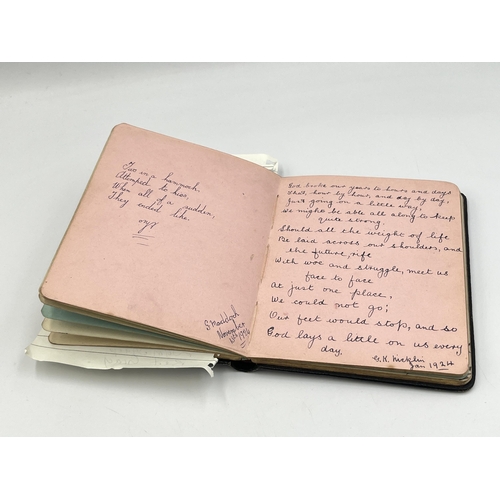 Two in a hammock.
Attempted to kiss,
When all of a sudden,
They ended like.
November
God broke our years to hours and days
That, hour by hour, and day by day,
Just going on a little way,
We might be able all along to keep
quite strong.
Should all the weight of life
Be laid across our shoulders, and
the future, rife
With woe and struggle, meet us
face to face
At just one place,
We could not go;
Our feet would stop, and so
God lays a little on us every
day.
G. H. Nicklin
Jan 1924